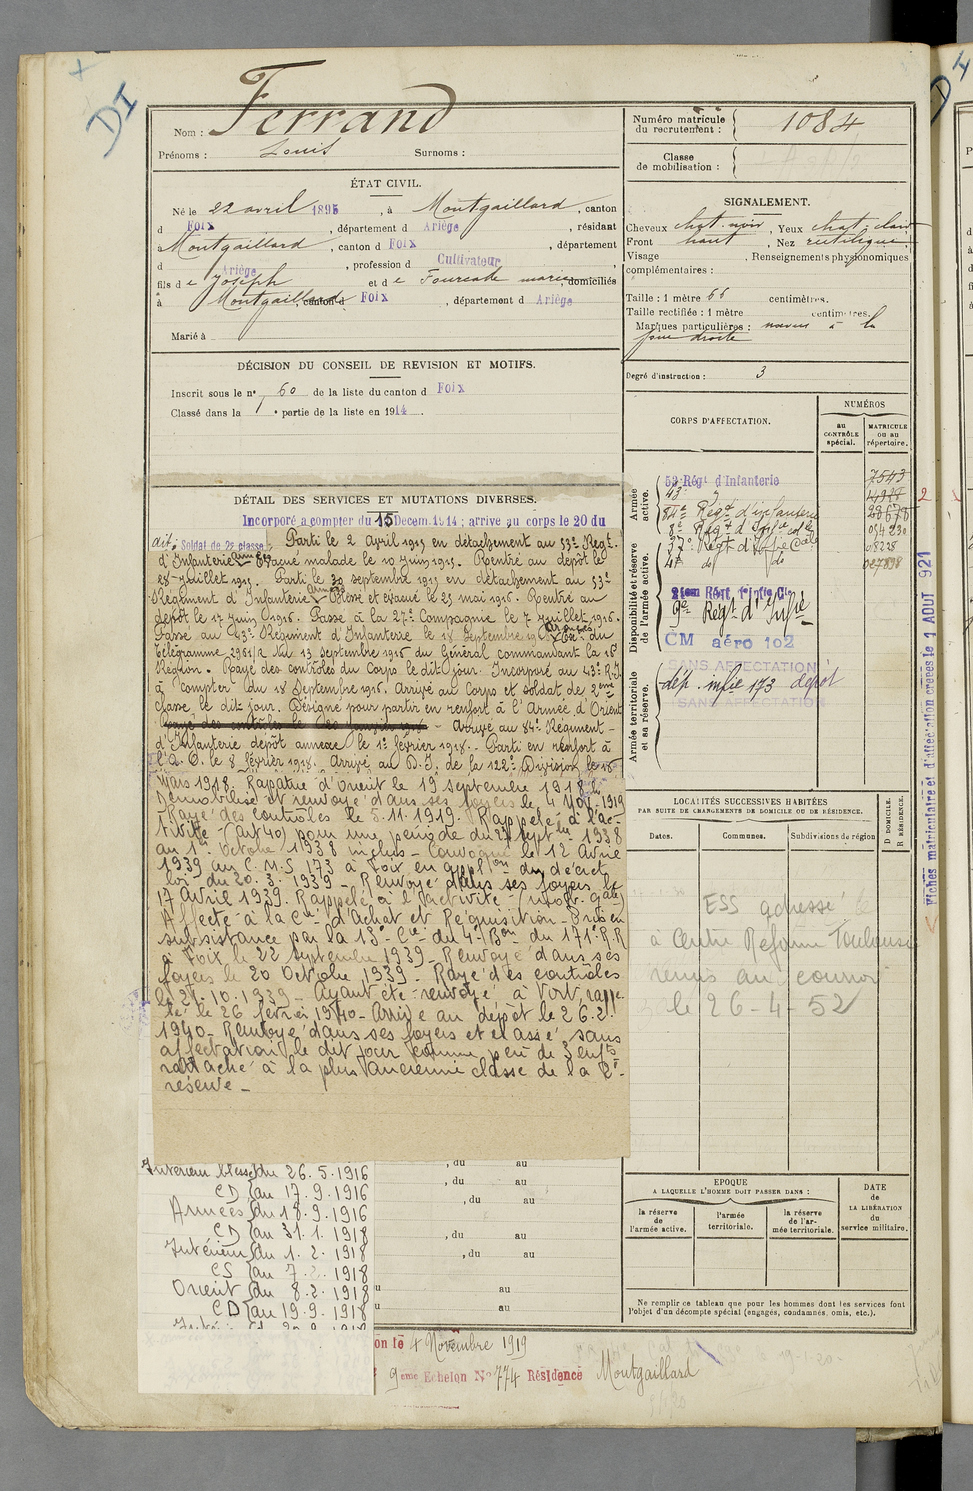 DI
Nom : Ferrand
Prénoms : Louis Surnoms :
Numéro matricule du recrutement : 1084
Classe de mobilisation :
ÉTAT CIVIL.
Né le 22 avril 1895, à Montgaillard, canton
d Foix, département d Ariège, résidant
à Montgaillard, canton d Foix, département
d Ariège, profession d Cultivateur
fils de Joseph et de Fourcade marie, domiciliés
à Montgaillard canton d Foix, département d Ariège
Marié à
SIGNALEMENT.
Cheveux chat. noir, Yeux chat clair
Front haut, Nez rectiligne
Visage , Renseignements physionomiques
complémentaires :
Taille : 1 mètre 66 centimètres.
Taille rectifiée : 1 mètre centimètres.
Marques particulières : naevus à la
joue droite
Degré d'instruction : 3
DÉCISION DU CONSEIL DE REVISION ET MOTIFS.
Inscrit sous le n° 60 de la liste du canton d Foix
Classé dans la 1e partie de la liste en 1914.
CORPS D'AFFECTATION.
NUMÉROS
au CONTRÔLE spécial.
MATRICULE ou au répertoire.
Armée active.
53 Régt d'Infanterie 7543
43e
84e Régt d'infanterie
Disponibilité et réserve de l'armée active.
9e Régt d'Infie
CM aéro 102
SANS AFFECTATION
Armée territoriale et sa réserve.
dép. infie 173 dépôt
SANS AFFECTATION
Fiches matriculaire et d'affectation créées le 1 AOUT 921
DÉTAIL DES SERVICES ET MUTATIONS DIVERSES.
Incorporé a compter du 15 Décem. 1914 ; arrive au corps le 20 du
dit ; Soldat de 2e classe. Parti le 2 Avril 1915 en détachement au 53e Régt.
d'Infanterie Armées Evacué malade le 10 Juin 1915. Rentré au dépôt le
28 Juillet 1915. Parti le 30 septembre 1915 en détachement au 53e
Régiment d'Infanterie Armées Blessé et évacué le 25 mai 1916. Rentré au
dépôt le 17 Juin 1916. Passé à la 27e Compagnie le 7 Juillet 1916.
Passé au 43e Régiment d'Infanterie le 18 Septembre 1916 Armées Ex. du
Télégramme 2961/R du 13 septembre 1916 du Général commandant la 16e
Région. Rayé des contrôles du Corps le dit jour. Incorporé au 43e R.I.
à compter du 18 Septembre 1916. Arrivé au Corps et soldat de 2eme
classe le dit jour. Désigné pour partir en renfort à l'Armée d'Orient
Arrivé au 84e Régiment
d'Infanterie dépôt annexe le 1er février 1918. Parti en renfort à
l'A. O. le 8 février 1918. Arrivé au D.I. de la 122e Division le 15
Mars 1918. Rapatrié d'Orient le 19 septembre 1918.
Démobilisé et renvoyé dans ses foyers le 4 Nov. 1919
Rayé des contrôles le 5.11.1919. Rappelé à l'ac-
tivité (art 40) pour une période du 27 septbre 1938
au 1er Octobre 1938 inclus - Convoqué le 12 Avril
1939 au C.M.I 173 à Foix en applion du décret
loi du 20.3.1939 - Renvoyé dans ses foyers le
17 Avril 1939. Rappelé à l'activité (mob. gale)
Affecté à la Cie d'Achat et Réquisition - Pris en
subsistance par la 13e Cie du 4e Bon du 171e R.R
à Foix le 22 Septembre 1939 - Renvoyé dans ses
foyers le 20 Octobre 1939 - Rayé des contrôles
le 21.10.1939 - Ayant été renvoyé à tort rappe-
lé le 26 février 1940 - Arrivé au dépôt le 26.2.
1940 - Renvoyé dans ses foyers et classé sans
affectation le dit jour comme père de 3 enfts
rattaché à la plus ancienne classe de la 2e
réserve -
LOCALITÉS SUCCESSIVES HABITÉES
PAR SUITE DE CHANGEMENTS DE DOMICILE OU DE RÉSIDENCE.
Dates. Communes. Subdivisions de région D DOMICILE. R RÉSIDENCE.
ESS adressé le
à Centre Réforme Toulouse
remis au courrier
le 26-4-52
Intérieur blessé du 26.5.1916
CD au 17.9.1916
Armées du 18.9.1916
CD au 31.1.1918
Intérieur du 1.2.1918
CS au 7.2.1918
Orient du 8.2.1918
CD au 19.9.1918
, du au
, du au
, du au
, du au
, du au
au
au
EPOQUE
A LAQUELLE L'HOMME DOIT PASSER DANS :
la réserve de l'armée active.
l'armée territoriale.
la réserve de l'armée territoriale.
DATE de LA LIBÉRATION du service militaire.
Ne remplir ce tableau que pour les hommes dont les services font
l'objet d'un décompte spécial (engagés, condamnés, omis, etc.).
on le 4 Novembre 1919
9eme Echelon N° 774 Résidence Montgaillard